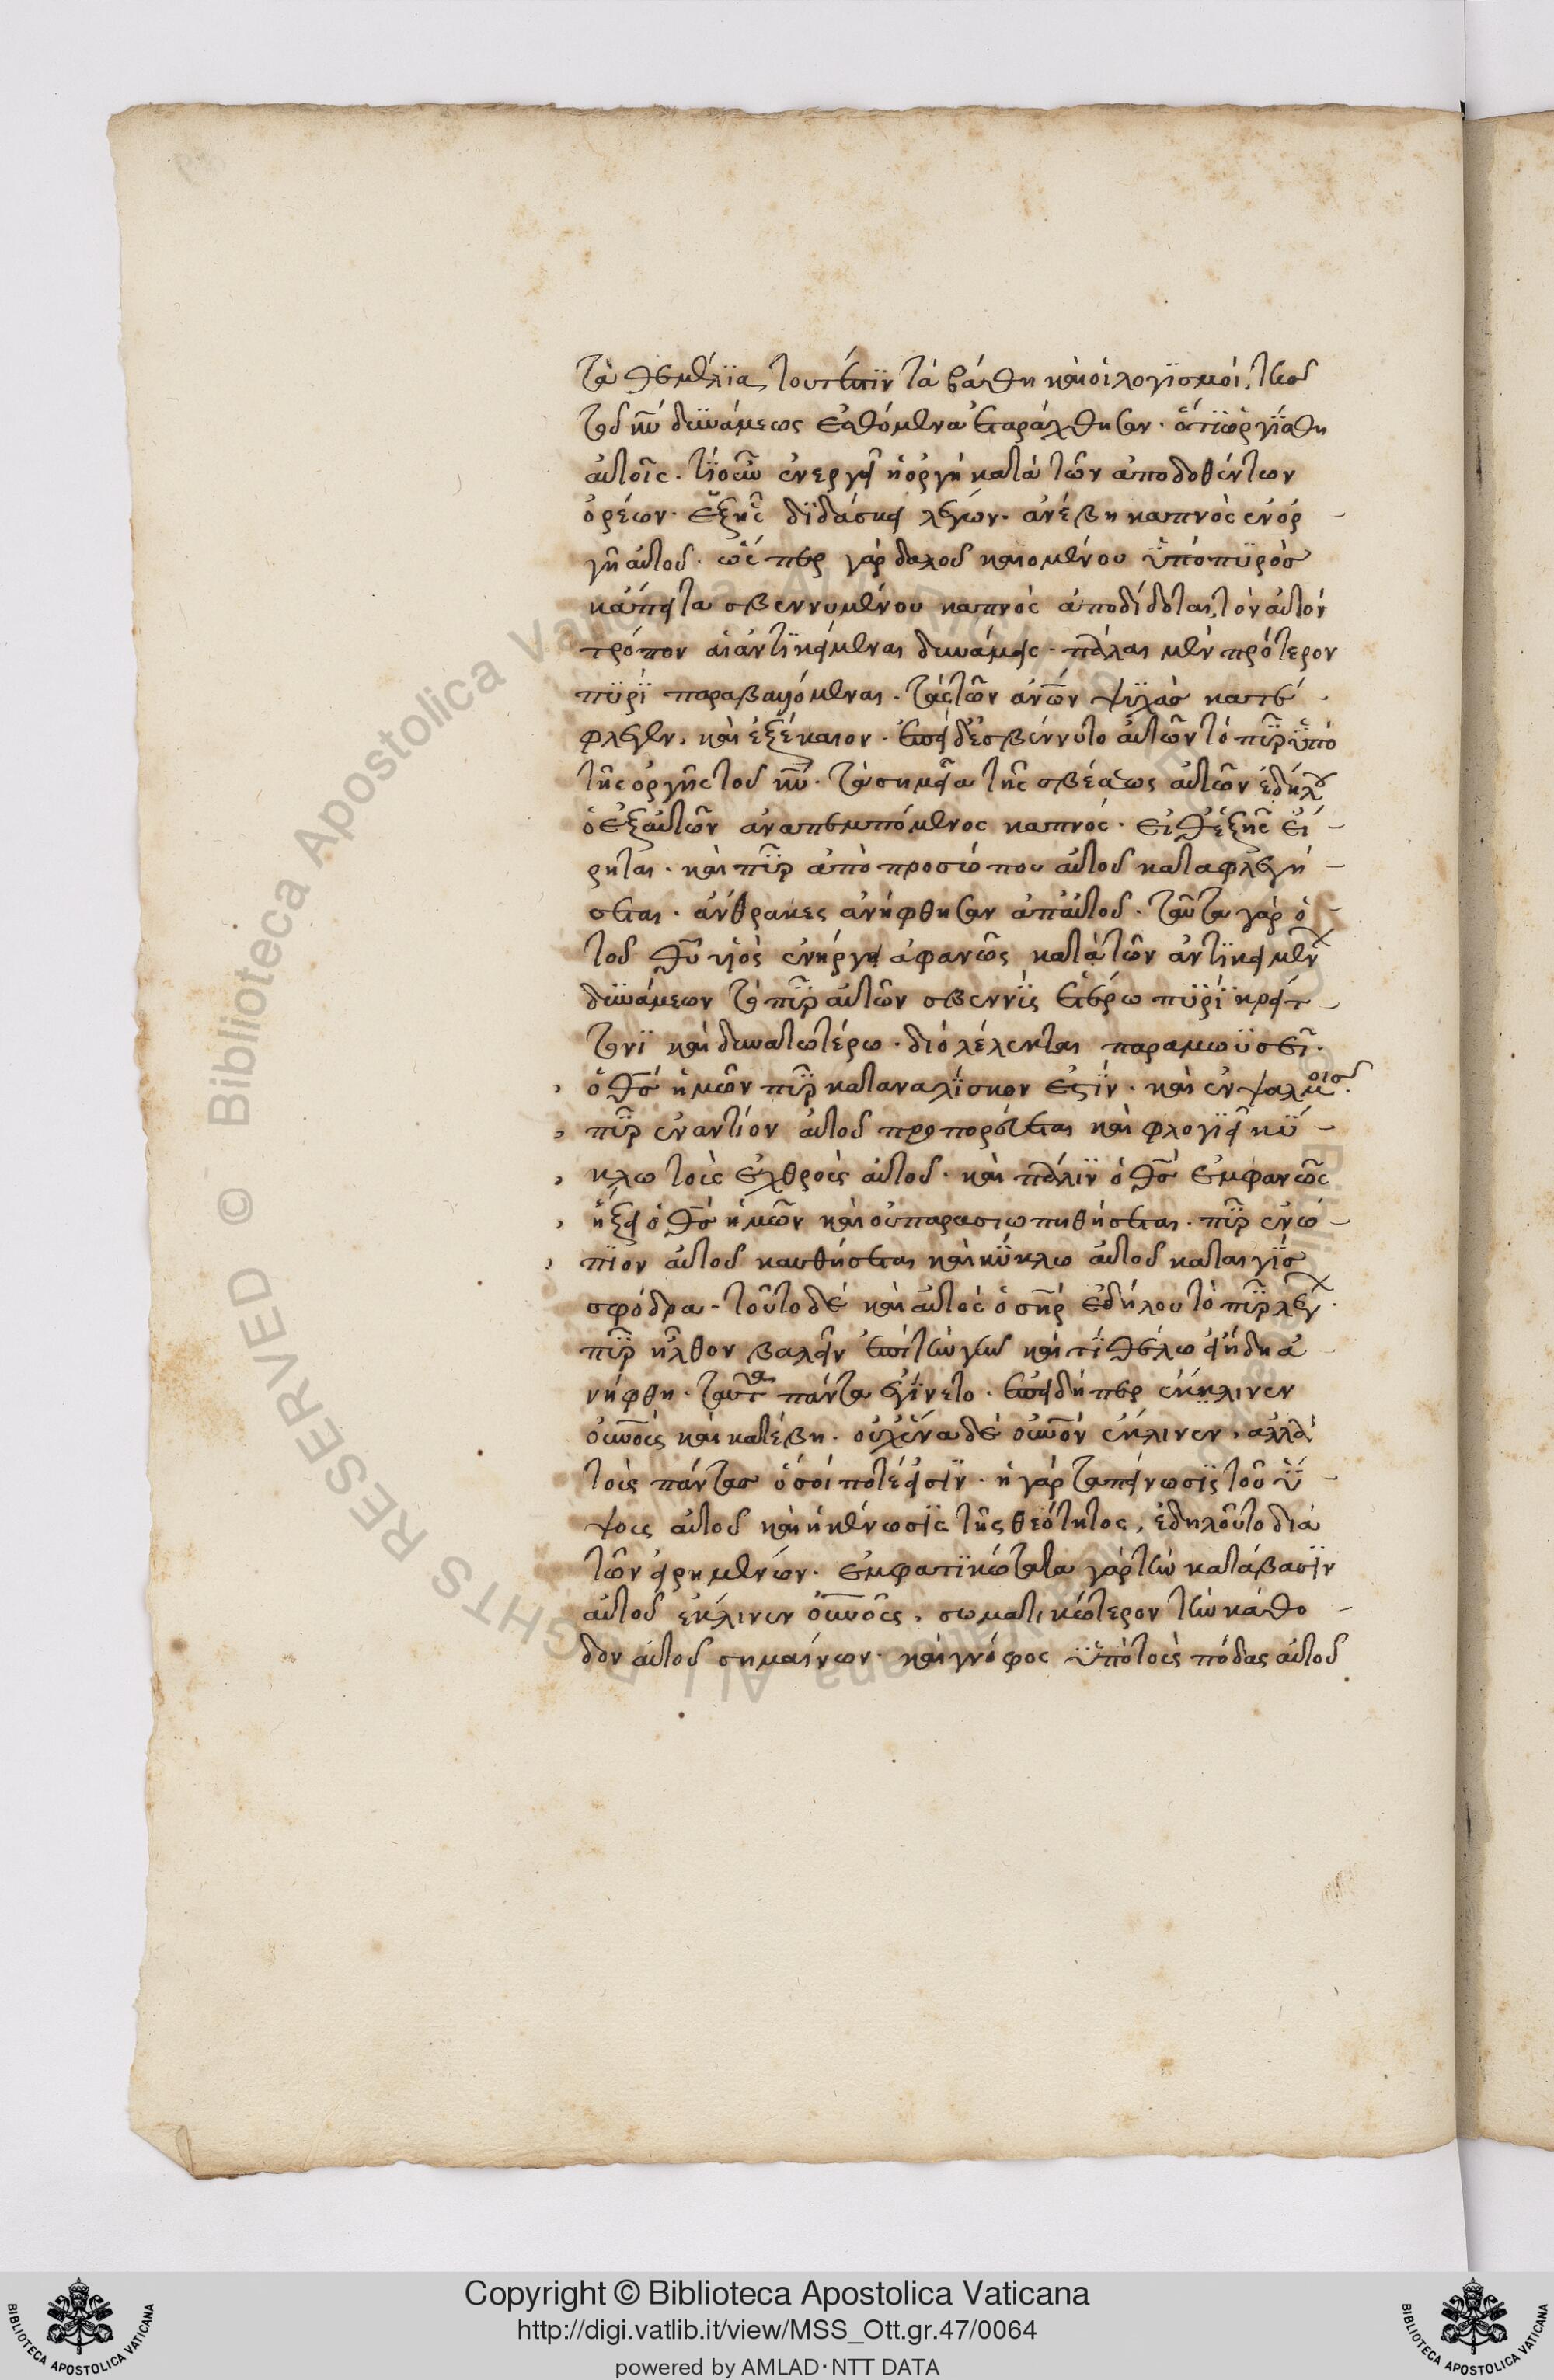 τὰ θεμέλϊα, τουτέστϊν τὰ βάθη καὶ οἱ λογϊσμοί, ὑπὸ
τῆς κυ δυνάμεως ἐλεγχόμενα ἐταράχθησαν. ὅτϊ ὠργίσθη
αὐτοῖς. τί οὖν ἐνεργεῖ ἡ ὀργὴ κατὰ τῶν ἀποδοθέντων
ὀρέων. ἑξῆς δϊδάσκει λέγων. ἀνέβη καπνὸς ἐν ὀρ
γῆ αὐτοῦ. ὥσπερ γὰρ δαλοῦ καιομένου ὑπὸ πυρὸς
κἄπειτα σβεννυμένου καπνὸς ἀποδίδοται, τὸν αὐτὸν
τρόπον αἱ ἀντϊκείμεναι δυνάμεις. πάλαι μὲν πρότερον
πυρὶ παραβαλλόμεναι. τὰς τῶν ἀνων ψϋχὰς κατέ
φλεγεν, καὶ ἐξέκαιον. ἐπεὶ δὲ ἐσβέννυτο αὐτῶν τὸ πῦρ ὑπὸ
τῆς ὀργῆς τοῦ κυ. τὰ σημεῖα τῆς σβέσεως αὐτῶν ἐδήλου
ὁ ἐξ αὐτῶν ἀναπεμπόμενος καπνός. εἶθ' ἑξῆς εἴ
ρηται. καὶ πῦρ ἀπὸ προσώπου αὐτοῦ καταφλεγή
σεται. ἄνθρακες ἀνήφθησαν ἀπ' αὐτοῦ. ταῦτα γὰρ ὁ
τοῦ θυ υἱὸς ἐνήργει ἀφανῶς κατὰ τῶν ἀντϊκειμεν
δυνάμεων τὸ πῦρ αὐτῶν σβεννὺς ἑτέρω πυρὶ κρείτ
τονϊ καὶ δυνατωτέρω. διὸ λέλεκται παρὰ μωϋσεῖ.
ὁ θσ ἡμῶν πῦρ καταναλίσκον ἐστίν. καὶ ἐν ψαλμοῖς.
πῦρ ἐναντίον αὐτοῦ προπορεύσεται καὶ φλογϊεῖ κύ
κλω τοὺς ἐχθροὺς αὐτοῦ. καὶ πάλϊν ὁ θσ ἐμφανῶς
ἥξει ὁ θσ ἡμῶν καὶ οὐ παρασιωπηθήσεται. πῦρ ἐνώ
πϊον αὐτοῦ καυθήσεται καὶ κύκλω αὐτοῦ καταιγὶς
σφόδρα. τοῦτο δὲ καὶ αὐτὸς ὁ σηρ ἐδήλου τὸ πῦρ λέγ.
πῦρ ἦλθον βαλεῖν ἐπὶ τὴν γῆν καὶ τί θέλω εἰ ἤδη ἀ
νήφθη. ταῦτα πάντα ἐγίνετο. ἐπειδήπερ ἔκλινεν
οὐνοὺς καὶ κατέβη. οὐχ ἕνα δὲ οὐνὸν ἔκλινεν, ἀλλὰ
τοὺς πάντας ὅσοι ποτέ εἰσϊν. ἡ γὰρ ταπείνωσϊς τοῦ ὕ
ψους αὐτοῦ καὶ ἡ κένωσϊς τῆς θεότητος, ἐδηλοῦτο διὰ
τῶν εἰρημένων. ἐμφατϊκώτατα γὰρ τὴν κατάβασϊν
αὐτοῦ ἔκλινεν οὐνοὺς, σωματικώτερον τὴν κάθο
δον αὐτοῦ σημαίνων. καὶ γνόφος ὑπὸ τοὺς πόδας αὐτοῦ
Copyright © Biblioteca Apostolica Vaticana
http://digi.vatlib.it/view/MSS_Ott.gr.47/0064
powered by AMLAD·NTT DATA